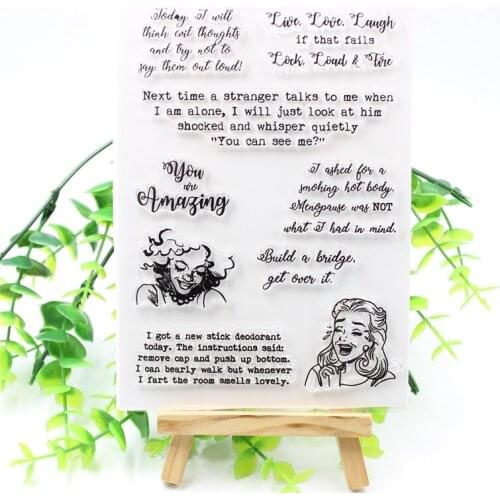 Today I will
think evil thoughts
and try not to
say them out loud!
Live, Love, Laugh
if that fails
Lock, Load & Fire
Next time a stranger talks to me when
I am alone, I will just look at him
shocked and whisper quietly
"You can see me?"
You
are
Amazing
I asked for a
smoking hot body,
Menopause was NOT
what I had in mind.
Build a bridge,
get over it.
I got a new stick deodorant
today. The instructions said:
remove cap and push up bottom.
I can bearly walk but whenever
I fart the room smells lovely.